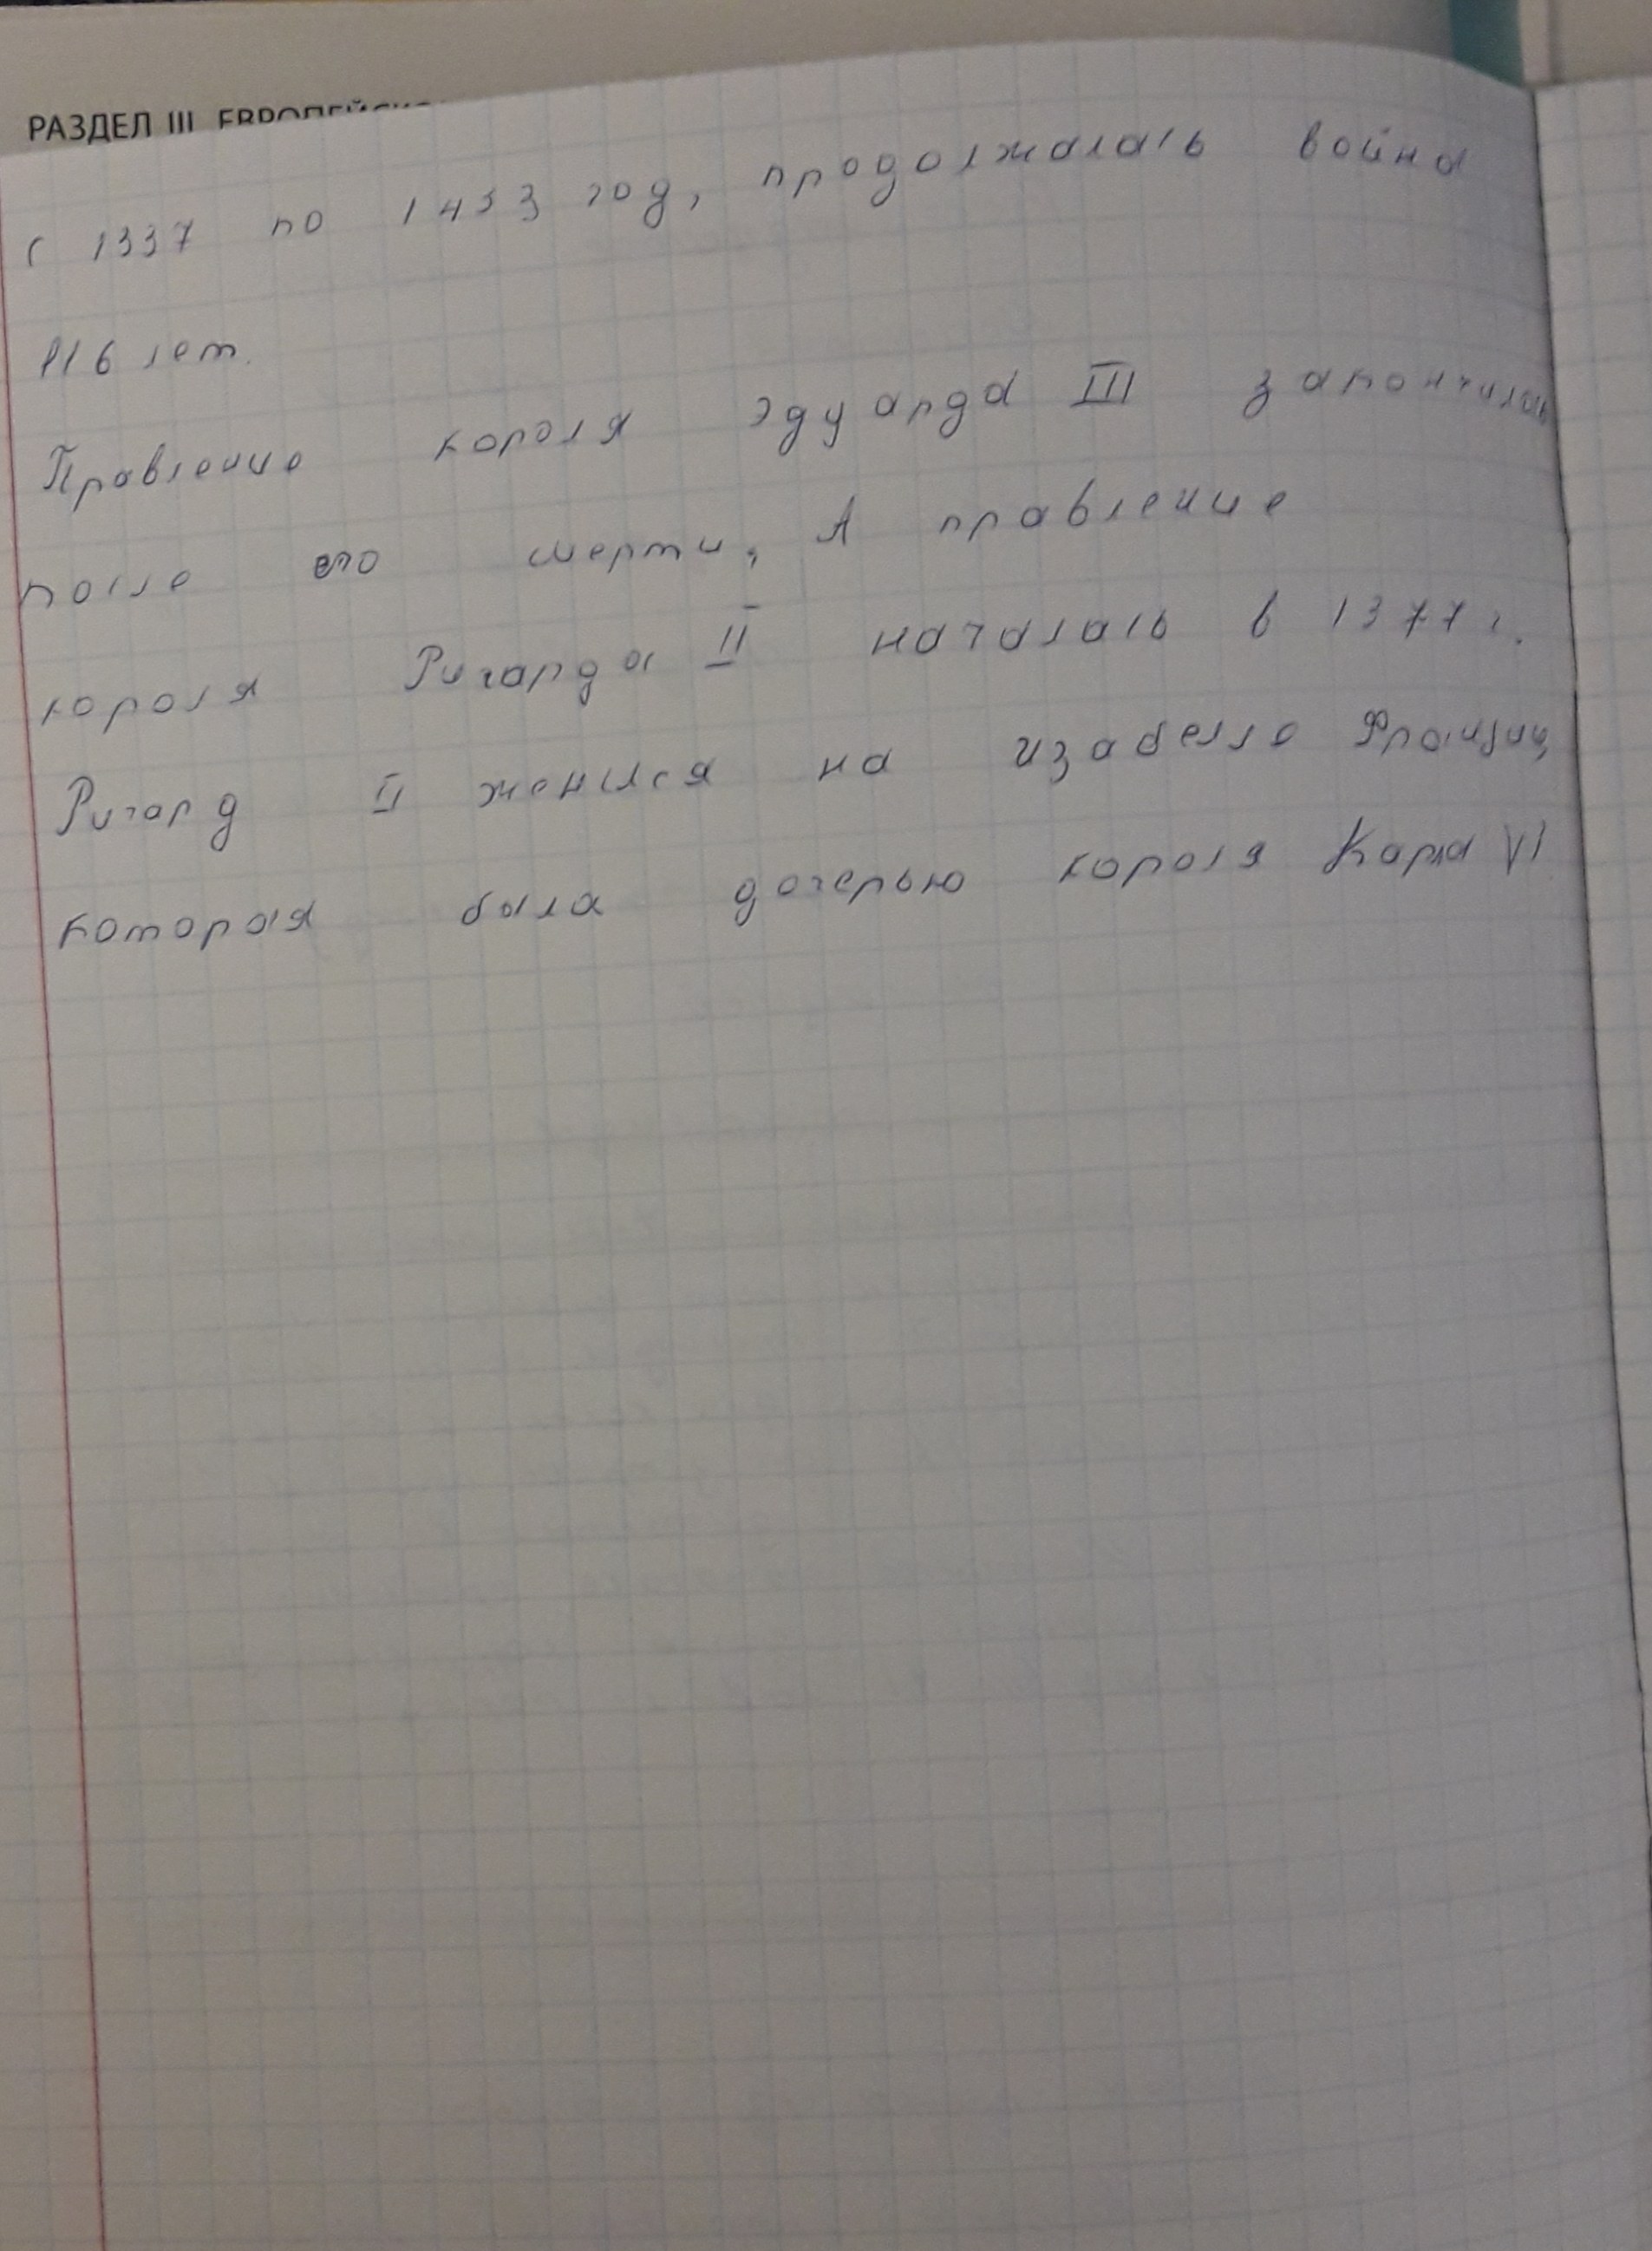 РАЗДЕЛ III. ЕВРОПЕЙСКО
с 1337 по 1453 год, продолжалась война
116 лет.
Правление короля Эдуарда III закончилась
после его смерти, А правление
короля Ричарда II началась в 1377 г.
Ричард II женился на Изабелле Франции,
которая была дочерью короля Карла VI